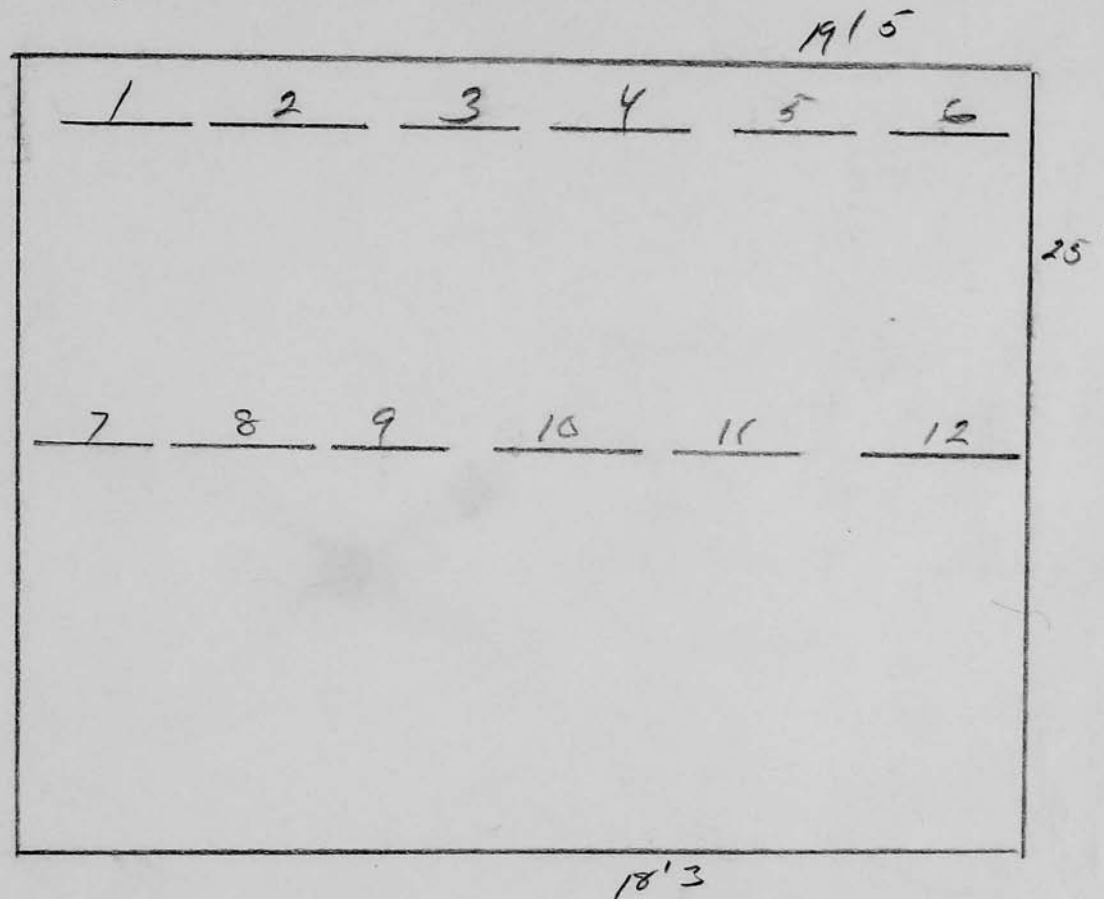 19'5
1 2 3 4 5 6
25
7 8 9 10 11 12
18'3